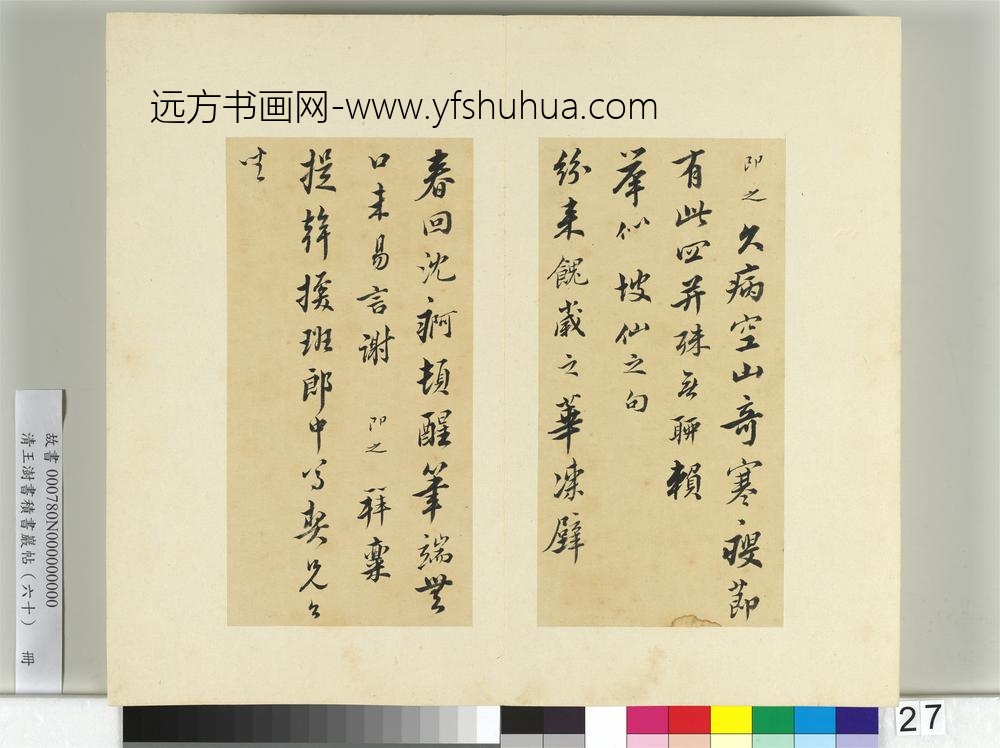 远方书画网-www.yfshuhua.com
即之久病空山奇寒節
有此四并殊无聊賴
似坡仙之句
紛来餽歲之華凍壁
春回沈痾頓醒筆端無
口未易言謝 即之 拜稟
提幹班郎中契兄
坐
故書 000780N000000000
清王澍書積書巖帖（六十） 冊
27